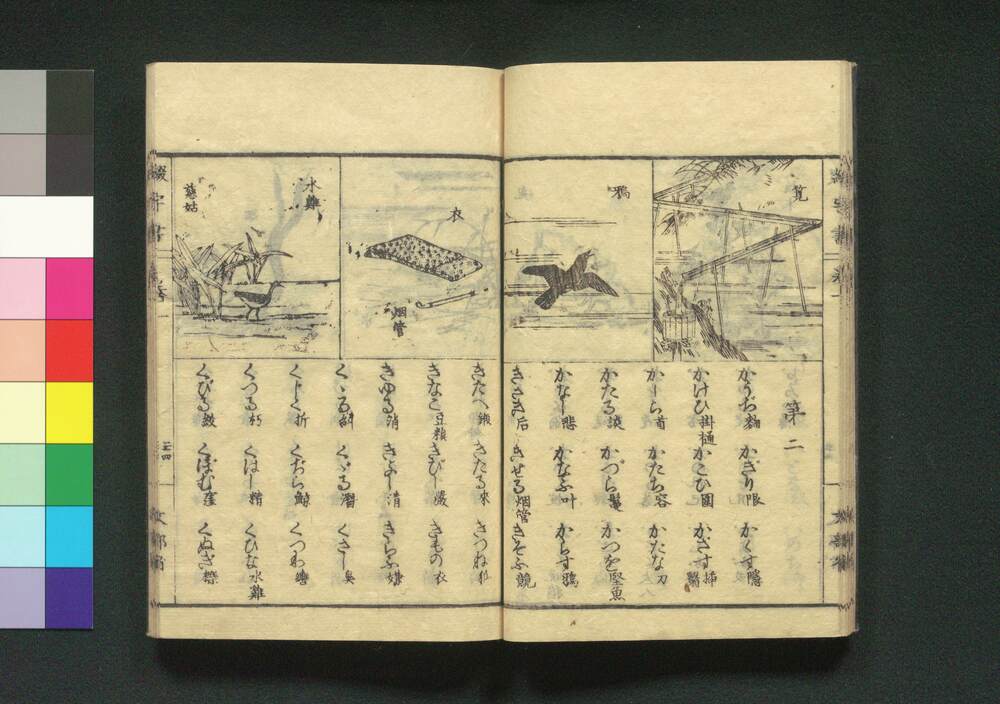 筧
鴉
第二
かうぢ麹 かぎり限 かくす隠
かけひ掛樋 かこひ圍 かざす挿
かしら首 かたち容 かたな刀
かたる談 かづら鬘 かつを堅魚
かなし悲 かなふ叶 からす鴉
きさき后 きせる烟管 きそふ競
衣
烟管
水雞
慈姑
きたへ鍛 きたる來 きつね狐
きなこ豆粉 きびし嚴 きもの衣
きゆる消 きよし清 きらふ嫌
くゝる くゞる潜 くさし臭
くじく折 くぢら鯨 くつわ轡
くつる朽 くはし精 くひな水雞
くびる くぼむ窪 くぬぎ櫟
綴字書 巻一
二十四
文部省